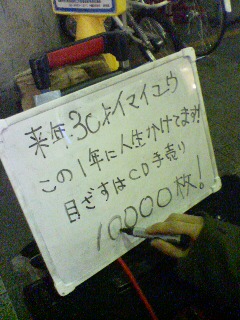 来年30才イマイユウ
この1年に人生かけてます!
目ざすはCD手売り
10000枚!